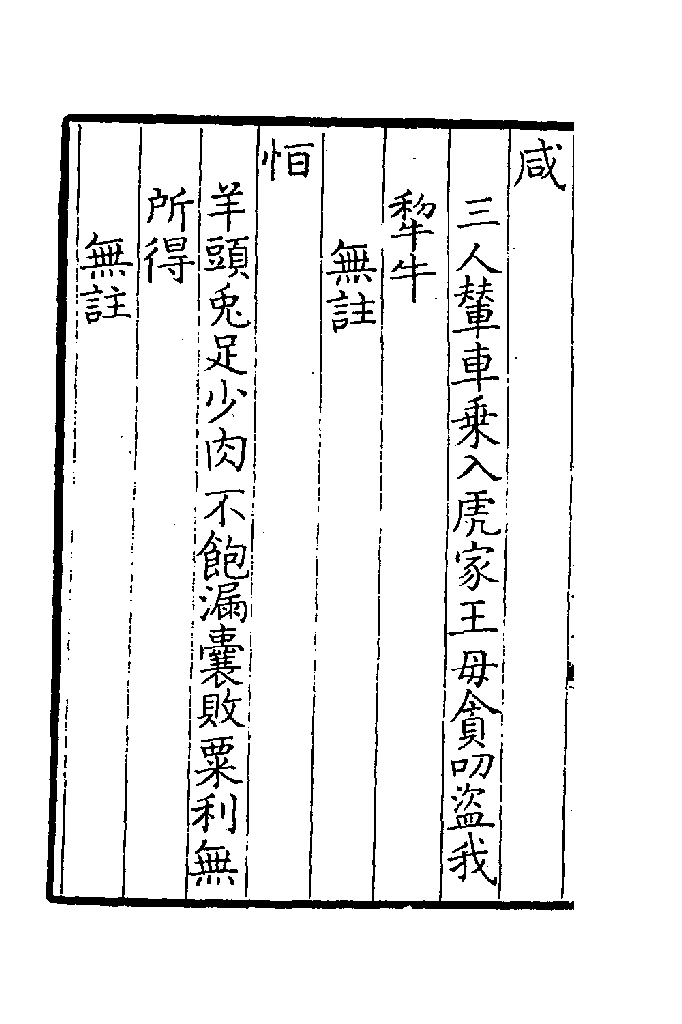 咸
三人輦車乗入虎家王毋貪叨盜我
犂牛
無註
恒
羊頭兎足少肉不飽漏囊敗粟利無
所得
無註